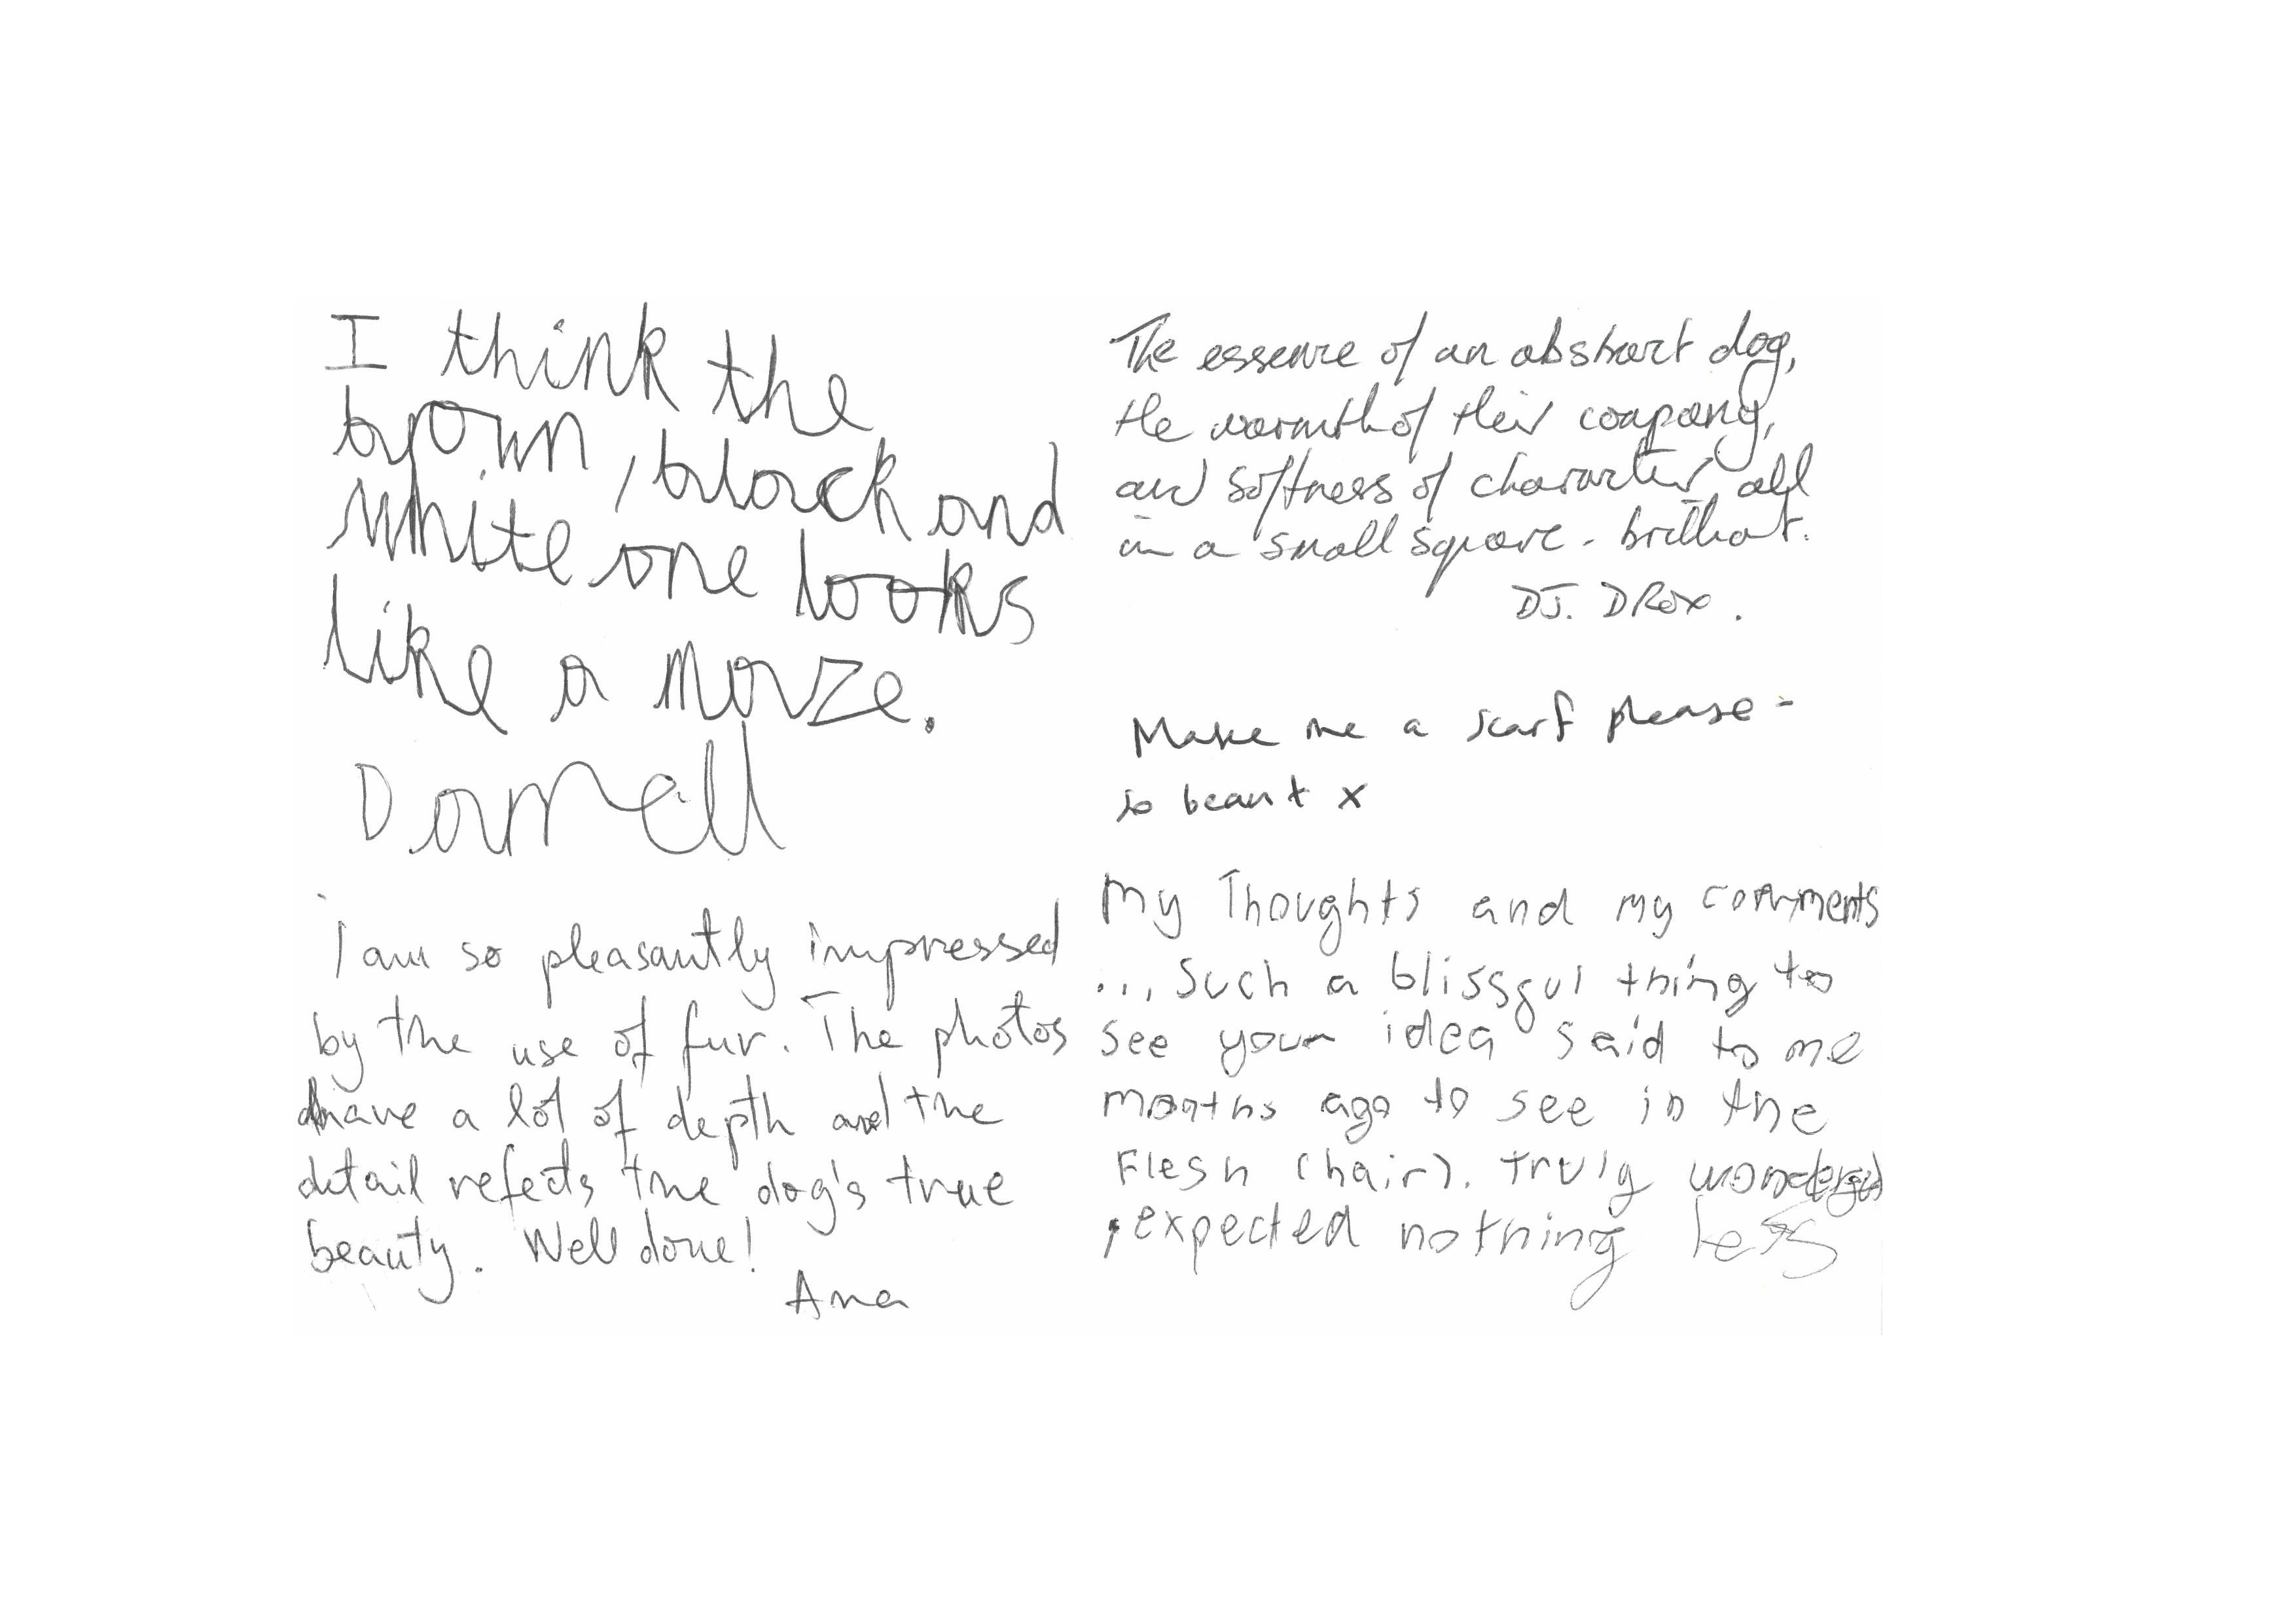 I think the
brown, black and
white one looks
like a maze.
Darnell
I am so pleasantly impressed
by the use of fur. The photos
have a lot of depth and the
detail refects the dog's true
beauty. Well done!
Ana
The essence of an abstract dog,
the warmth of their company,
and softness of character, all
in a small square - brilliant.
DJ. DRox.
Make me a scarf please -
so beaut x
My Thoughts and my comments
... Such a blissful thing to
see your idea said to me
months ago to see in the
Flesh (hair). Truly wonderful
, expected nothing less